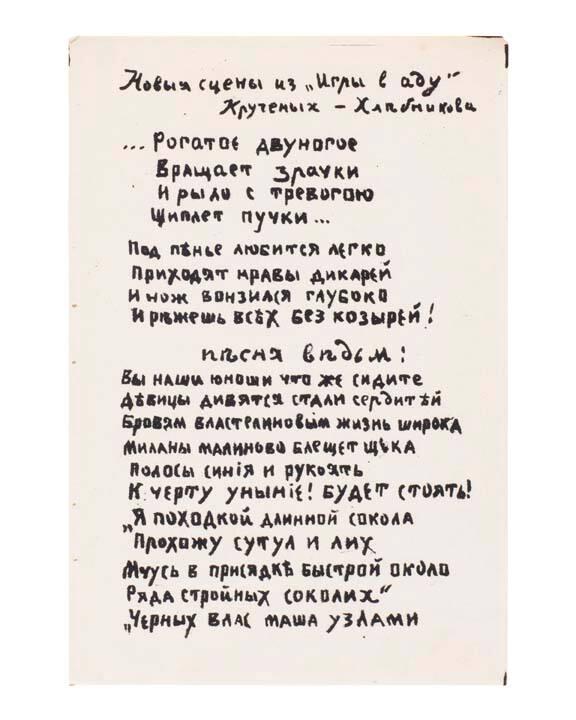 Новыя сцены из „Игры в аду“
Крученых – Хлѣбникова
... Рогатое двуногое
Вращает зрачки
И рыло с тревогою
Щиплет пучки ...
Под пѣнье любится легко
Приходят нравы дикарей
И нож вонзился глубоко
И рѣжешь всѣх без козырей!
пѣсня вѣдьм:
Вы наши юноши что же сидите
Дѣвицы дивятся стали сердитѣй
Бровям властелиновым жизнь широка
Миланы малиново блещет щека
Полосы синія и рукоять
К черту уныніе! будет стоять!
„Я походкой длинной сокола
Прохожу сутул и лих
Мчусь в присядкѣ быстрой около
Ряда стройных соколих“
„Черных влас маша узлами